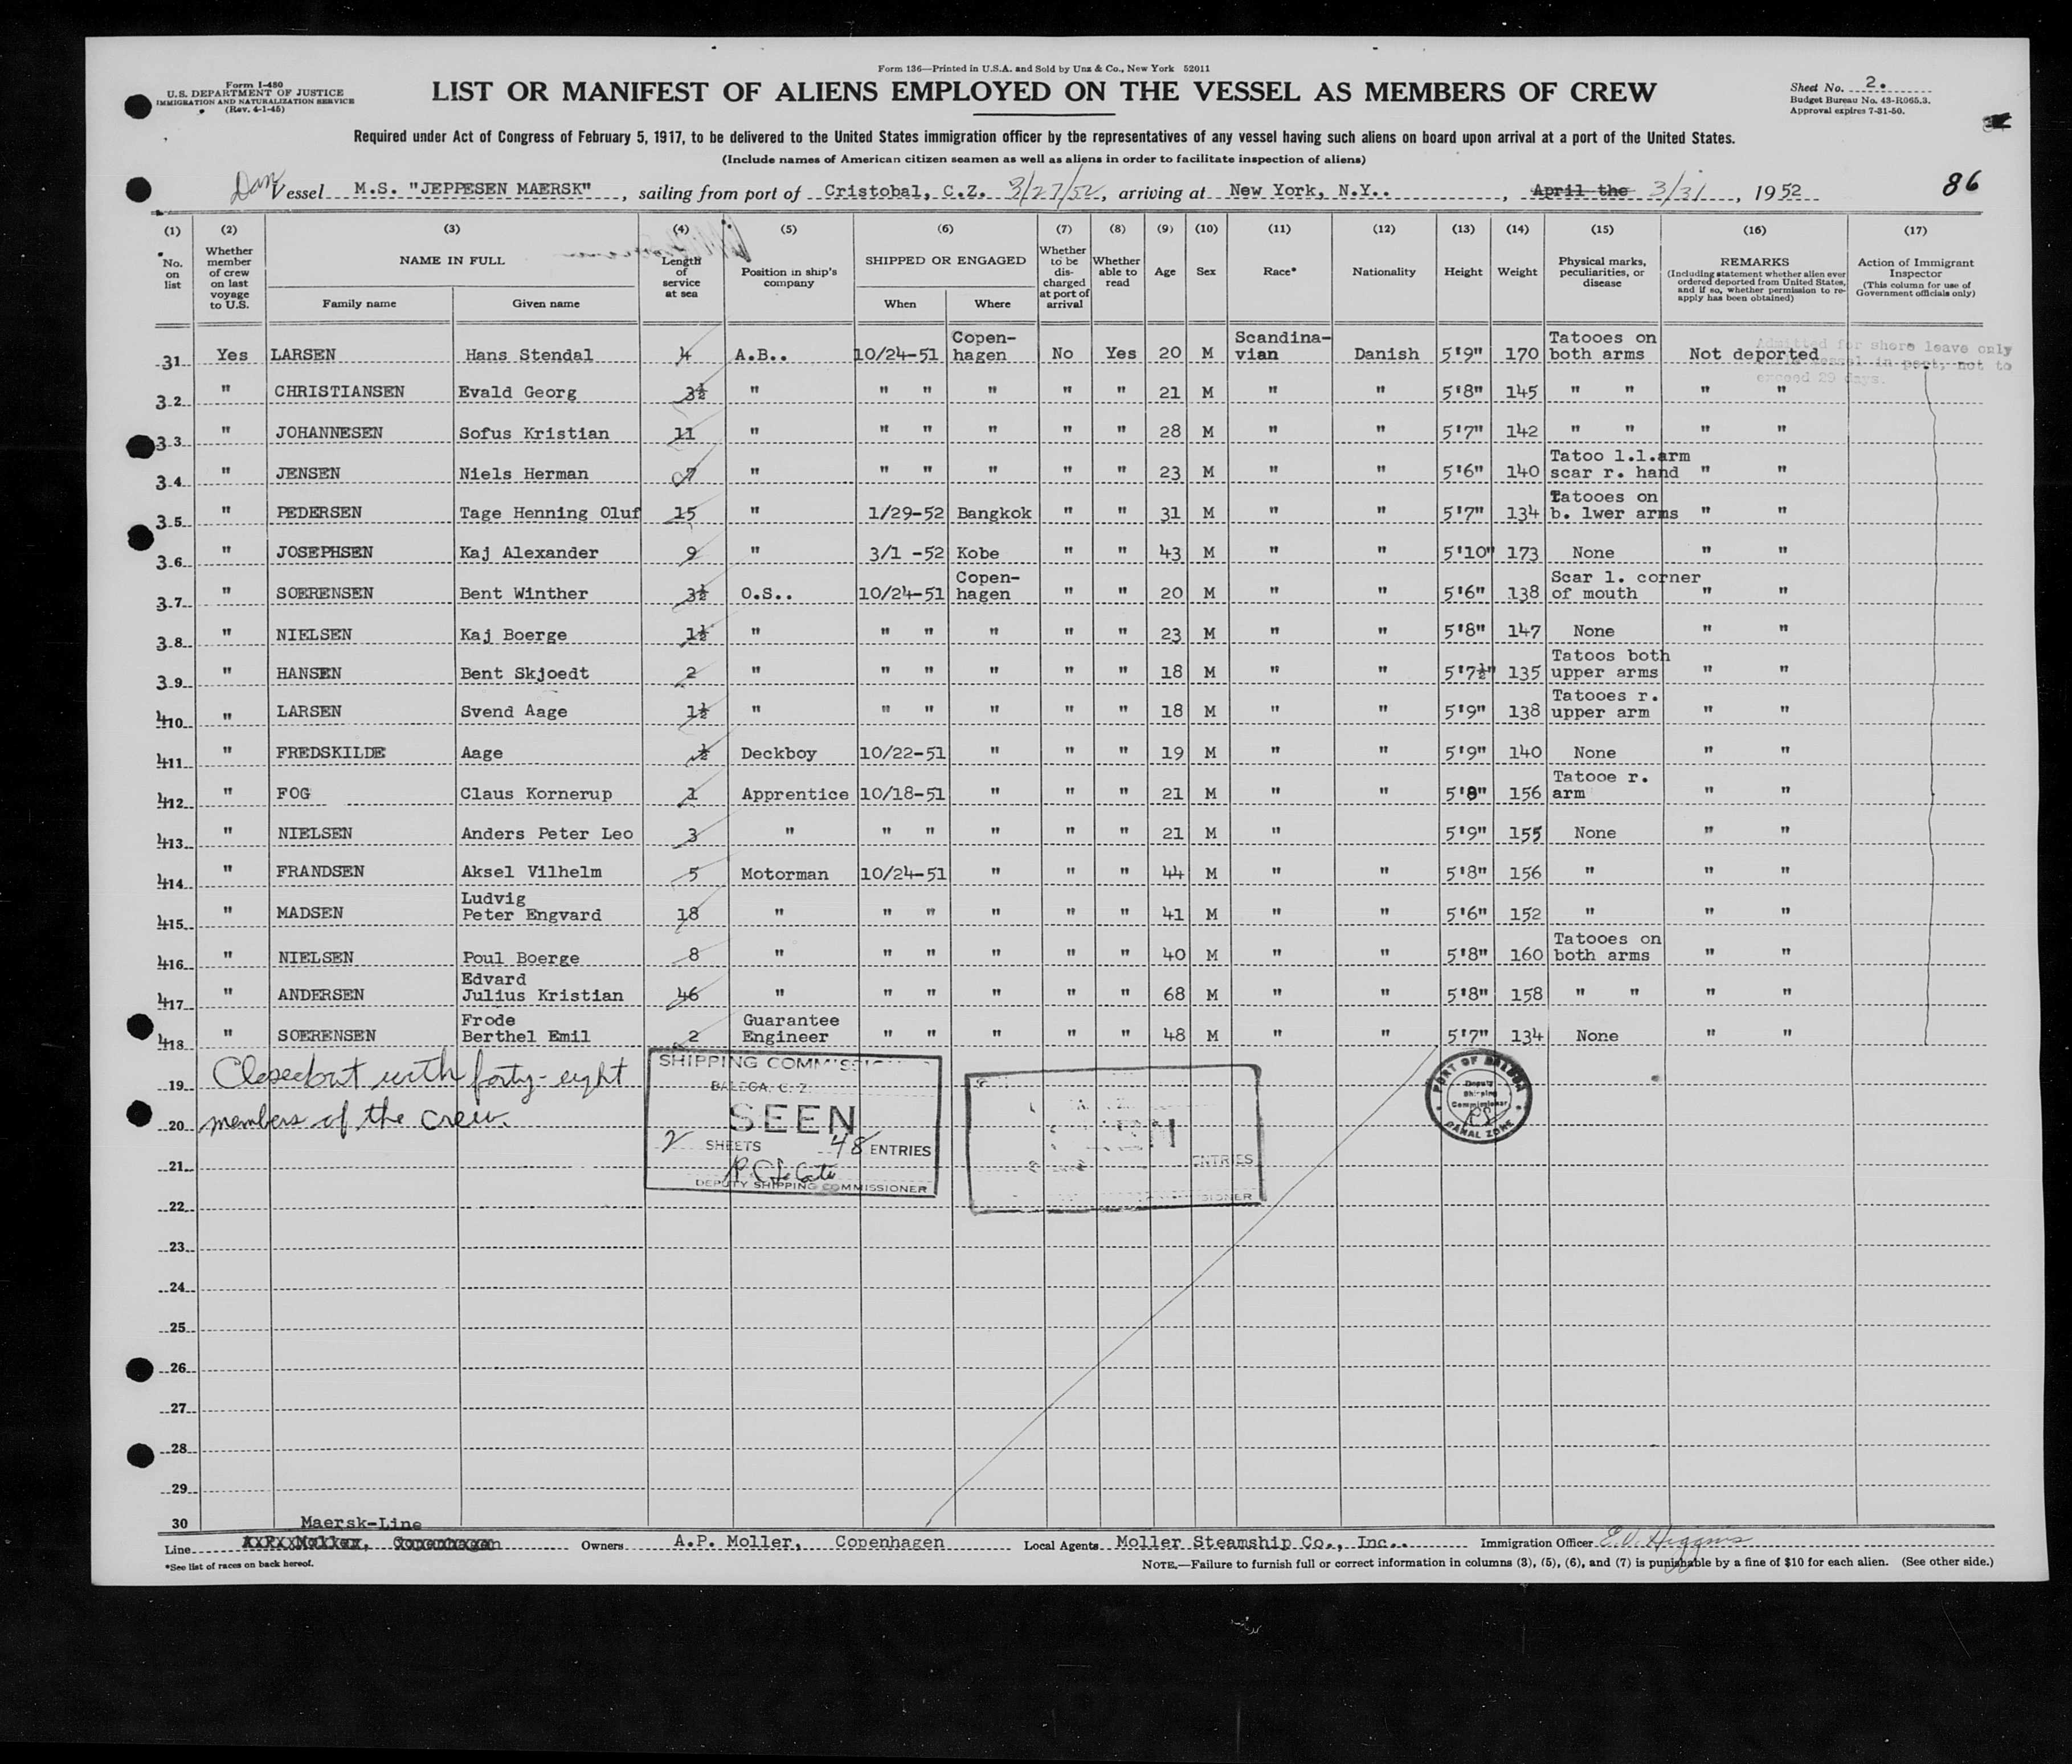 Form 136—Printed in U.S.A. and Sold by Unz & Co., New York 52011
Form I-480
U.S. DEPARTMENT OF JUSTICE
IMMIGRATION AND NATURALIZATION SERVICE
(Rev. 4-1-45)
LIST OR MANIFEST OF ALIENS EMPLOYED ON THE VESSEL AS MEMBERS OF CREW
Sheet No. 2.
Budget Bureau No. 43-R065.3.
Approval expires 7-31-50.
Required under Act of Congress of February 5, 1917, to be delivered to the United States immigration officer by the representatives of any vessel having such aliens on board upon arrival at a port of the United States.
(Include names of American citizen seamen as well as aliens in order to facilitate inspection of aliens)
Dan Vessel M.S. "JEPPESEN MAERSK", sailing from port of Cristobal, C.Z. 3/27/52, arriving at New York, N.Y.., April the 3/31, 1952 86
(1) (2) (3) (4) (5) (6) (7) (8) (9) (10) (11) (12) (13) (14) (15) (16) (17)
No. on list
Whether member of crew on last voyage to U.S.
NAME IN FULL
Family name Given name
Length of service at sea
Position in ship's company
SHIPPED OR ENGAGED
When Where
Whether to be discharged at port of arrival
Whether able to read
Age
Sex
Race*
Nationality
Height
Weight
Physical marks, peculiarities, or disease
REMARKS
(Including statement whether alien ever ordered deported from United States, and if so, whether permission to reapply has been obtained)
Action of Immigrant Inspector
(This column for use of Government officials only)
Admitted for shore leave only
in port, not to
exceed 29 days.
31 Yes LARSEN Hans Stendal 4 A.B.. 10/24-51 Copen-hagen No Yes 20 M Scandina-vian Danish 5'9" 170 Tatooes on both arms Not deported
32 " CHRISTIANSEN Evald Georg 3½ " " " " " " 21 M " " 5'8" 145 " " " "
33 " JOHANNESEN Sofus Kristian 11 " " " " " " 28 M " " 5'7" 142 " " " "
34 " JENSEN Niels Herman 7 " " " " " " 23 M " " 5'6" 140 Tatoo l.l.arm scar r. hand " "
35 " PEDERSEN Tage Henning Oluf 15 " 1/29-52 Bangkok " " 31 M " " 5'7" 134 Tatooes on b. lwer arms " "
36 " JOSEPHSEN Kaj Alexander 9 " 3/1 -52 Kobe " " 43 M " " 5'10" 173 None " "
37 " SOERENSEN Bent Winther 3½ O.S.. 10/24-51 Copen-hagen " " 20 M " " 5'6" 138 Scar l. corner of mouth " "
38 " NIELSEN Kaj Boerge 1½ " " " " " " 23 M " " 5'8" 147 None " "
39 " HANSEN Bent Skjoedt 2 " " " " " " 18 M " " 5'7½" 135 Tatoos both upper arms " "
410 " LARSEN Svend Aage 1½ " " " " " " 18 M " " 5'9" 138 Tatooes r. upper arm " "
411 " FREDSKILDE Aage ½ Deckboy 10/22-51 " " " 19 M " " 5'9" 140 None " "
412 " FOG Claus Kornerup 1 Apprentice 10/18-51 " " " 21 M " " 5'8" 156 Tatooe r. arm " "
413 " NIELSEN Anders Peter Leo 3 " " " " " " 21 M " 5'9" 155 None " "
414 " FRANDSEN Aksel Vilhelm 5 Motorman 10/24-51 " " " 44 M " " 5'8" 156 " " "
415 " MADSEN Ludvig Peter Engvard 18 " " " " " " 41 M " " 5'6" 152 " " "
416 " NIELSEN Poul Boerge 8 " " " " " " 40 M " " 5'8" 160 Tatooes on both arms " "
417 " ANDERSEN Edvard Julius Kristian 46 " " " " " " 68 M " " 5'8" 158 " " " "
418 " SOERENSEN Frode Berthel Emil 2 Guarantee Engineer " " " " " 48 M " " 5'7" 134 None " "
Closed out with forty-eight
members of the crew.
SHIPPING COMMISSI
BALBOA, C. Z.
SEEN
2 SHEETS 48 ENTRIES
DEPUTY SHIPPING COMMISSIONER
ENTRIES
SIONER
PORT OF BALBOA
Deputy
Shipping
Commissioner
CANAL ZONE
19
20
21
22
23
24
25
26
27
28
29
30
Maersk-Line
Line A.P. Moller, Copenhagen Owners A.P. Moller, Copenhagen Local Agents Moller Steamship Co., Inc.. Immigration Officer E.V. Higgins
*See list of races on back hereof.
NOTE.—Failure to furnish full or correct information in columns (3), (5), (6), and (7) is punishable by a fine of $10 for each alien. (See other side.)